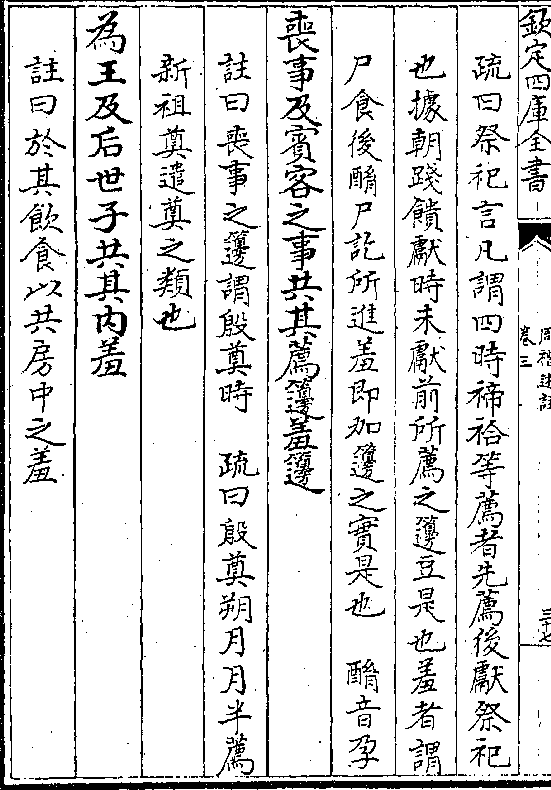 欽定四庫全書
周禮述註
卷三
三十七
疏曰祭祀言凡謂四時禘祫等薦者先薦後獻祭祀
也據朝踐饋獻時未獻前所薦之籩豆是也羞者謂
尸食後酳尸訖所進羞即加籩之實是也　酳音孕
喪事及賓客之事共其薦籩羞籩
註曰喪事之籩謂殷奠時　疏曰殷奠朔月月半薦
新祖奠遣奠之類也
為王及后世子共其内羞
註曰於其飲食以共房中之羞